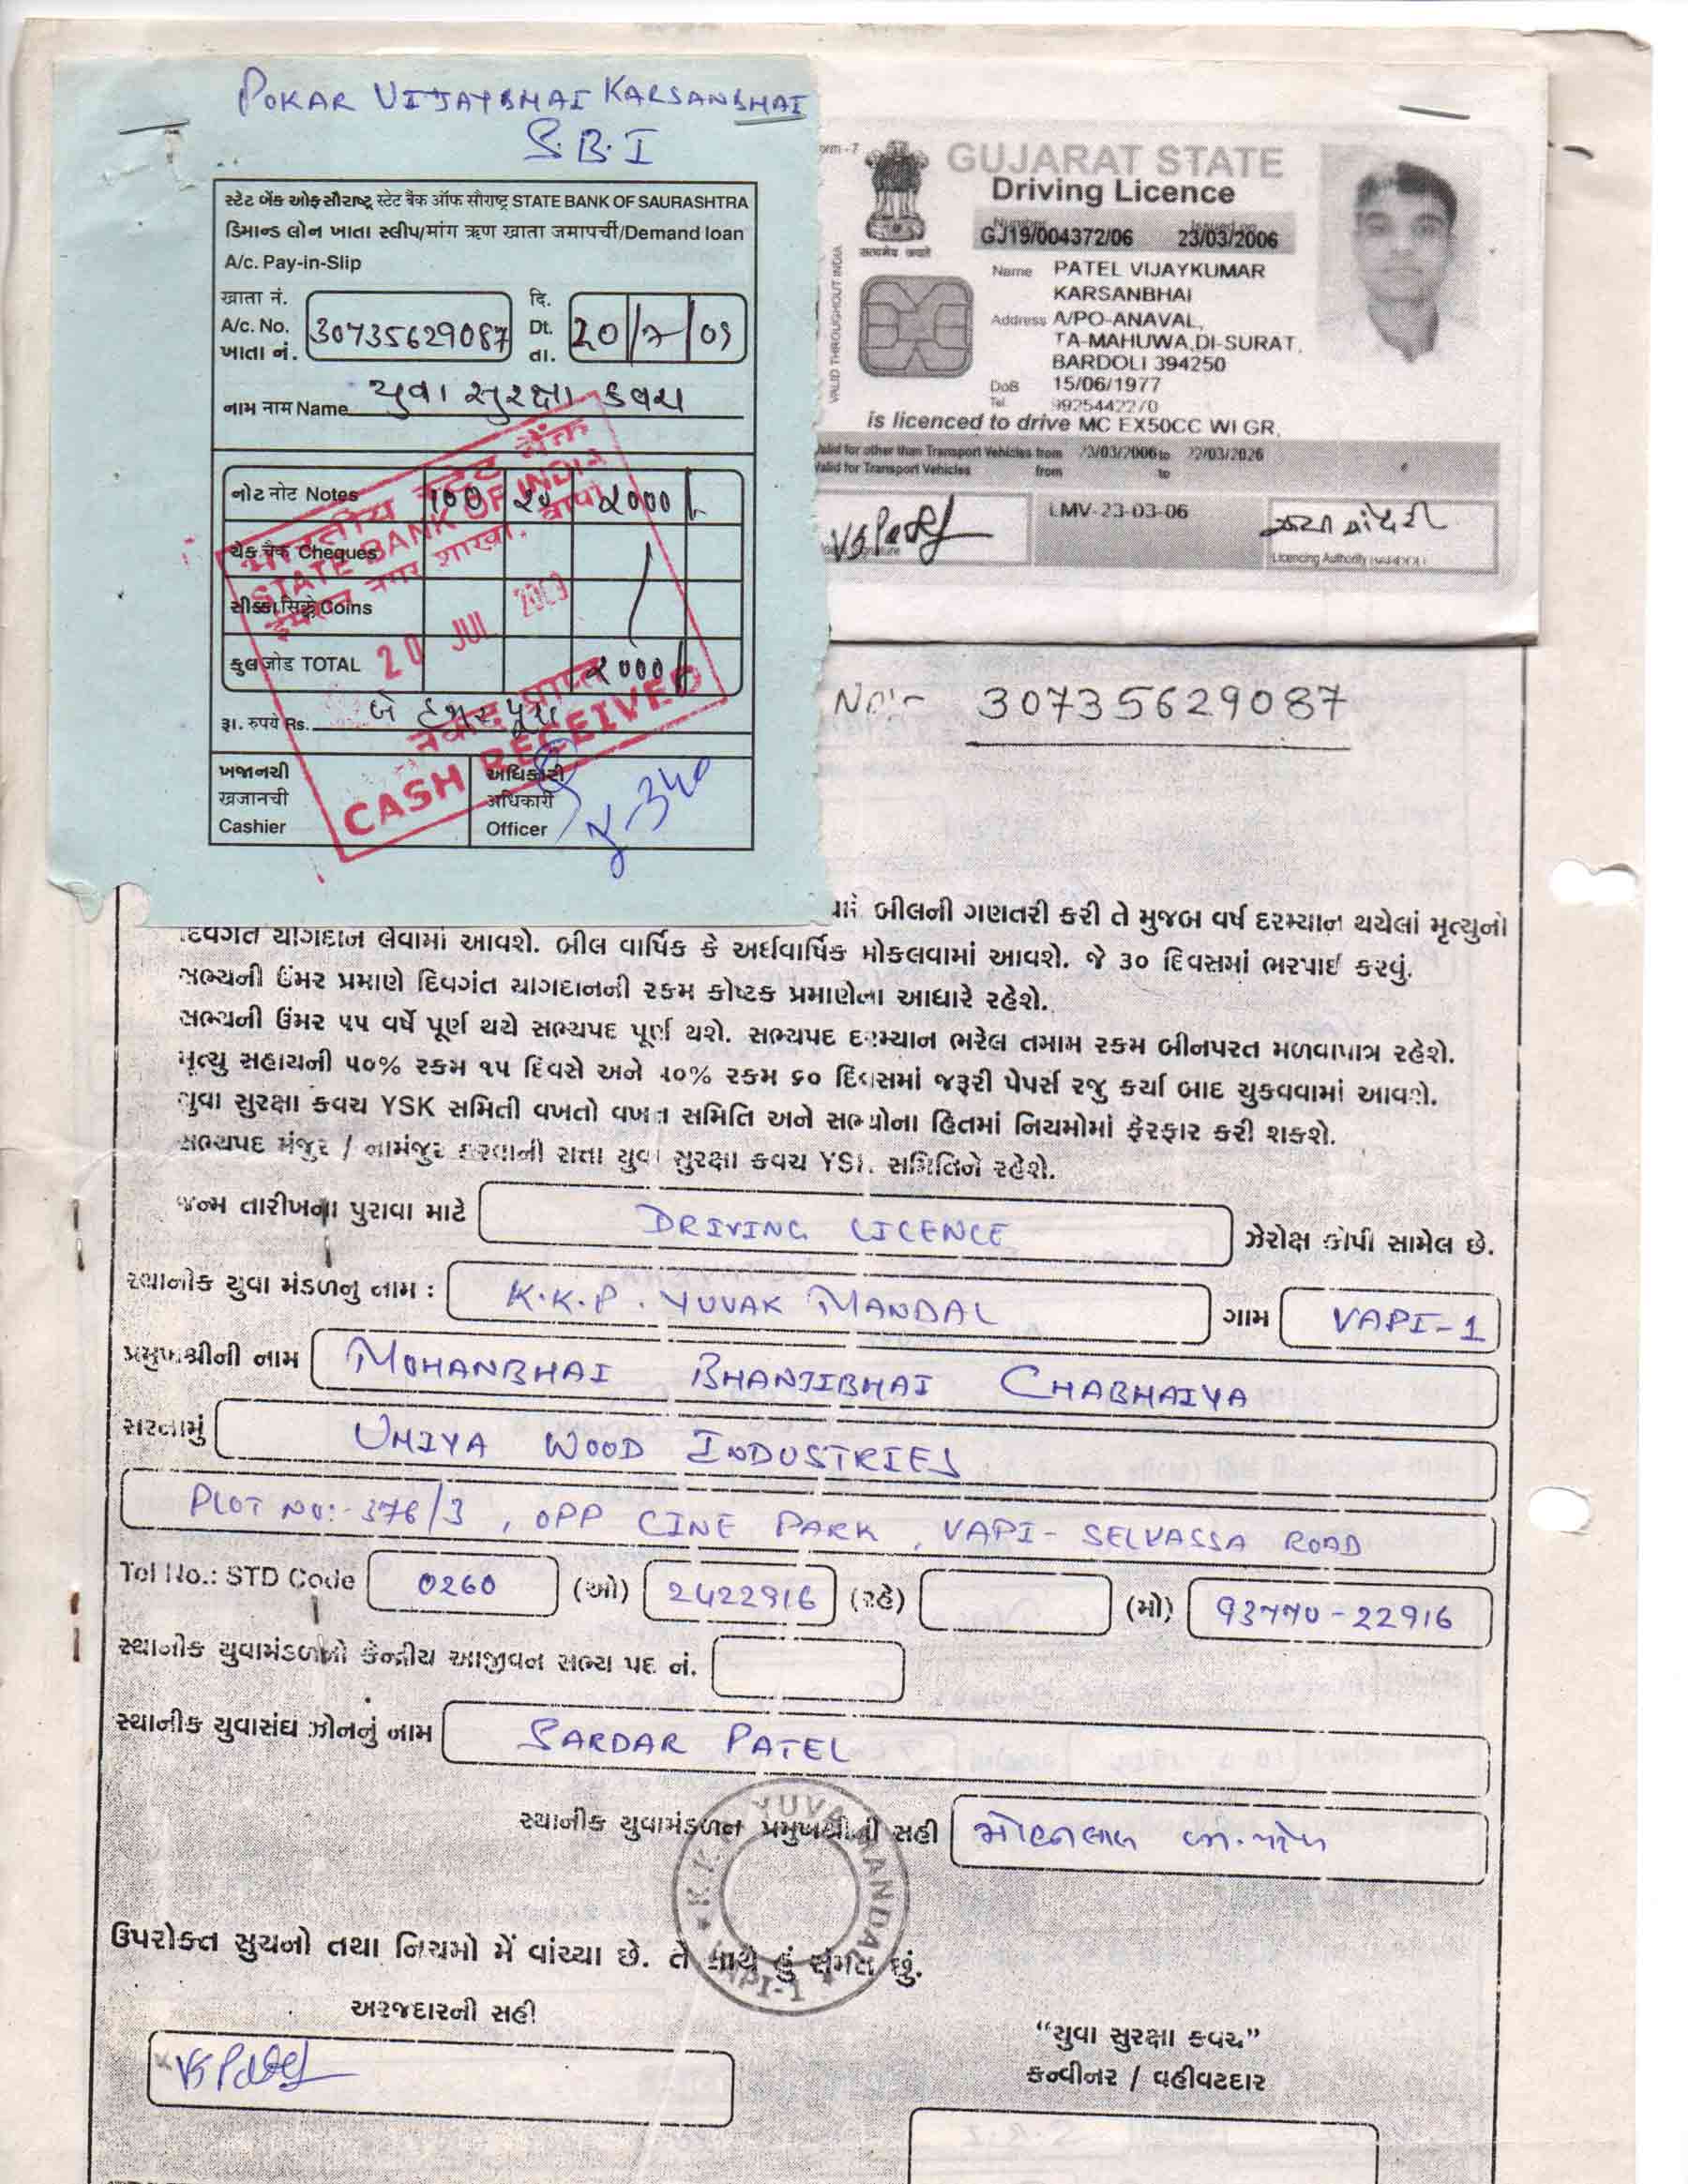 POKAR VIJAYBHAI KARSANBHAI
S.B.I
સ્ટેટ બેંક ઓફ સૌરાષ્ટ્ર स्टेट बैंक ऑफ सौराष्ट्र STATE BANK OF SAURASHTRA
ડિમાન્ડ લોન ખાતા સ્લીપ/मांग ऋण खाता जमापर्ची/Demand loan
A/c. Pay-in-Slip
खाता नं.
A/c. No. 30735629087
ખાતા નં.
दि.
Dt. 20/7/09
તા.
નામ नाम Name યુવા સુરક્ષા કવચ
નોટ नोट Notes 100 ૨૦ ૨000
ચેક चैक Cheques
સીક્કા सिक्के Coins
કુલ जोड TOTAL ૨000
રૂા. रुपये Rs. બે હજાર પૂરા
ખજાનચી
खजानची
Cashier
અધિકારી
अधिकारी
Officer
भारतीय स्टेट बैंक
STATE BANK OF INDIA
नगर शाखा, वापी
20 JUL 2009
नकद प्राप्त
CASH RECEIVED
GUJARAT STATE
Driving Licence
Number Issued on
GJ19/004372/06 23/03/2006
सत्यमेव जयते
VALID THROUGHOUT INDIA
Name PATEL VIJAYKUMAR
KARSANBHAI
Address A/PO-ANAVAL,
TA-MAHUWA,DI-SURAT,
BARDOLI 394250
DoB 15/06/1977
Tel
is licenced to drive MC EX50CC WI GR,
Valid for other than Transport Vehicles from 23/03/2006 to 22/03/2026
Valid for Transport Vehicles from to
VKPatel
LMV-23-03-06
Licencing Authority
No:- 30735629087
બીલની ગણતરી કરી તે મુજબ વર્ષ દરમ્યાન થયેલાં મૃત્યુનો
દિવગંત યોગદાન લેવામાં આવશે. બીલ વાર્ષિક કે અર્ધવાર્ષિક મોકલવામાં આવશે. જે ૩૦ દિવસમાં ભરપાઈ કરવું.
સભ્યની ઉંમર પ્રમાણે દિવગંત યોગદાનની રકમ કોષ્ટક પ્રમાણેના આધારે રહેશે.
સભ્યની ઉંમર ૫૫ વર્ષે પૂર્ણ થયે સભ્યપદ પૂર્ણ થશે. સભ્યપદ દરમ્યાન ભરેલ તમામ રકમ બીનપરત મળવાપાત્ર રહેશે.
મૃત્યુ સહાયની ૫૦% રકમ ૧૫ દિવસે અને ૫૦% રકમ ૬૦ દિવસમાં જરૂરી પેપર્સ રજુ કર્યા બાદ ચુકવવામાં આવશે.
યુવા સુરક્ષા કવચ YSK સમિતી વખતો વખત સમિતિ અને સભ્યોના હિતમાં નિયમોમાં ફેરફાર કરી શકશે.
સભ્યપદ મંજુર / નામંજુર કરવાની સત્તા યુવા સુરક્ષા કવચ YSK સમિતિને રહેશે.
જન્મ તારીખના પુરાવા માટે DRIVING LICENCE ઝેરોક્ષ કોપી સામેલ છે.
સ્થાનીક યુવા મંડળનુ નામ : K.K.P. YUVAK MANDAL ગામ VAPI-1
પ્રમુખશ્રીની નામ MOHANBHAI BHANJIBHAI CHABHAIYA
સરનામું UMIYA WOOD INDUSTRIES
PLOT NO:-376/3, OPP CINE PARK, VAPI-SELVASSA ROAD
Tel No.: STD Code 0260 (ઓ) 2422916 (રહે) (મો) 93770-22916
સ્થાનીક યુવામંડળનો કેન્દ્રીય આજીવન સભ્ય પદ નં.
સ્થાનીક યુવાસંઘ ઝોનનું નામ SARDAR PATEL
સ્થાનીક યુવામંડળન પ્રમુખશ્રીની સહી
K.K.P. YUVAK MANDAL
VAPI-1
ઉપરોક્ત સુચનો તથા નિયમો મેં વાંચ્યા છે. તે સાથે હું સંમત છું.
અરજદારની સહી
VKPatel
“યુવા સુરક્ષા કવચ”
કન્વીનર / વહીવટદાર